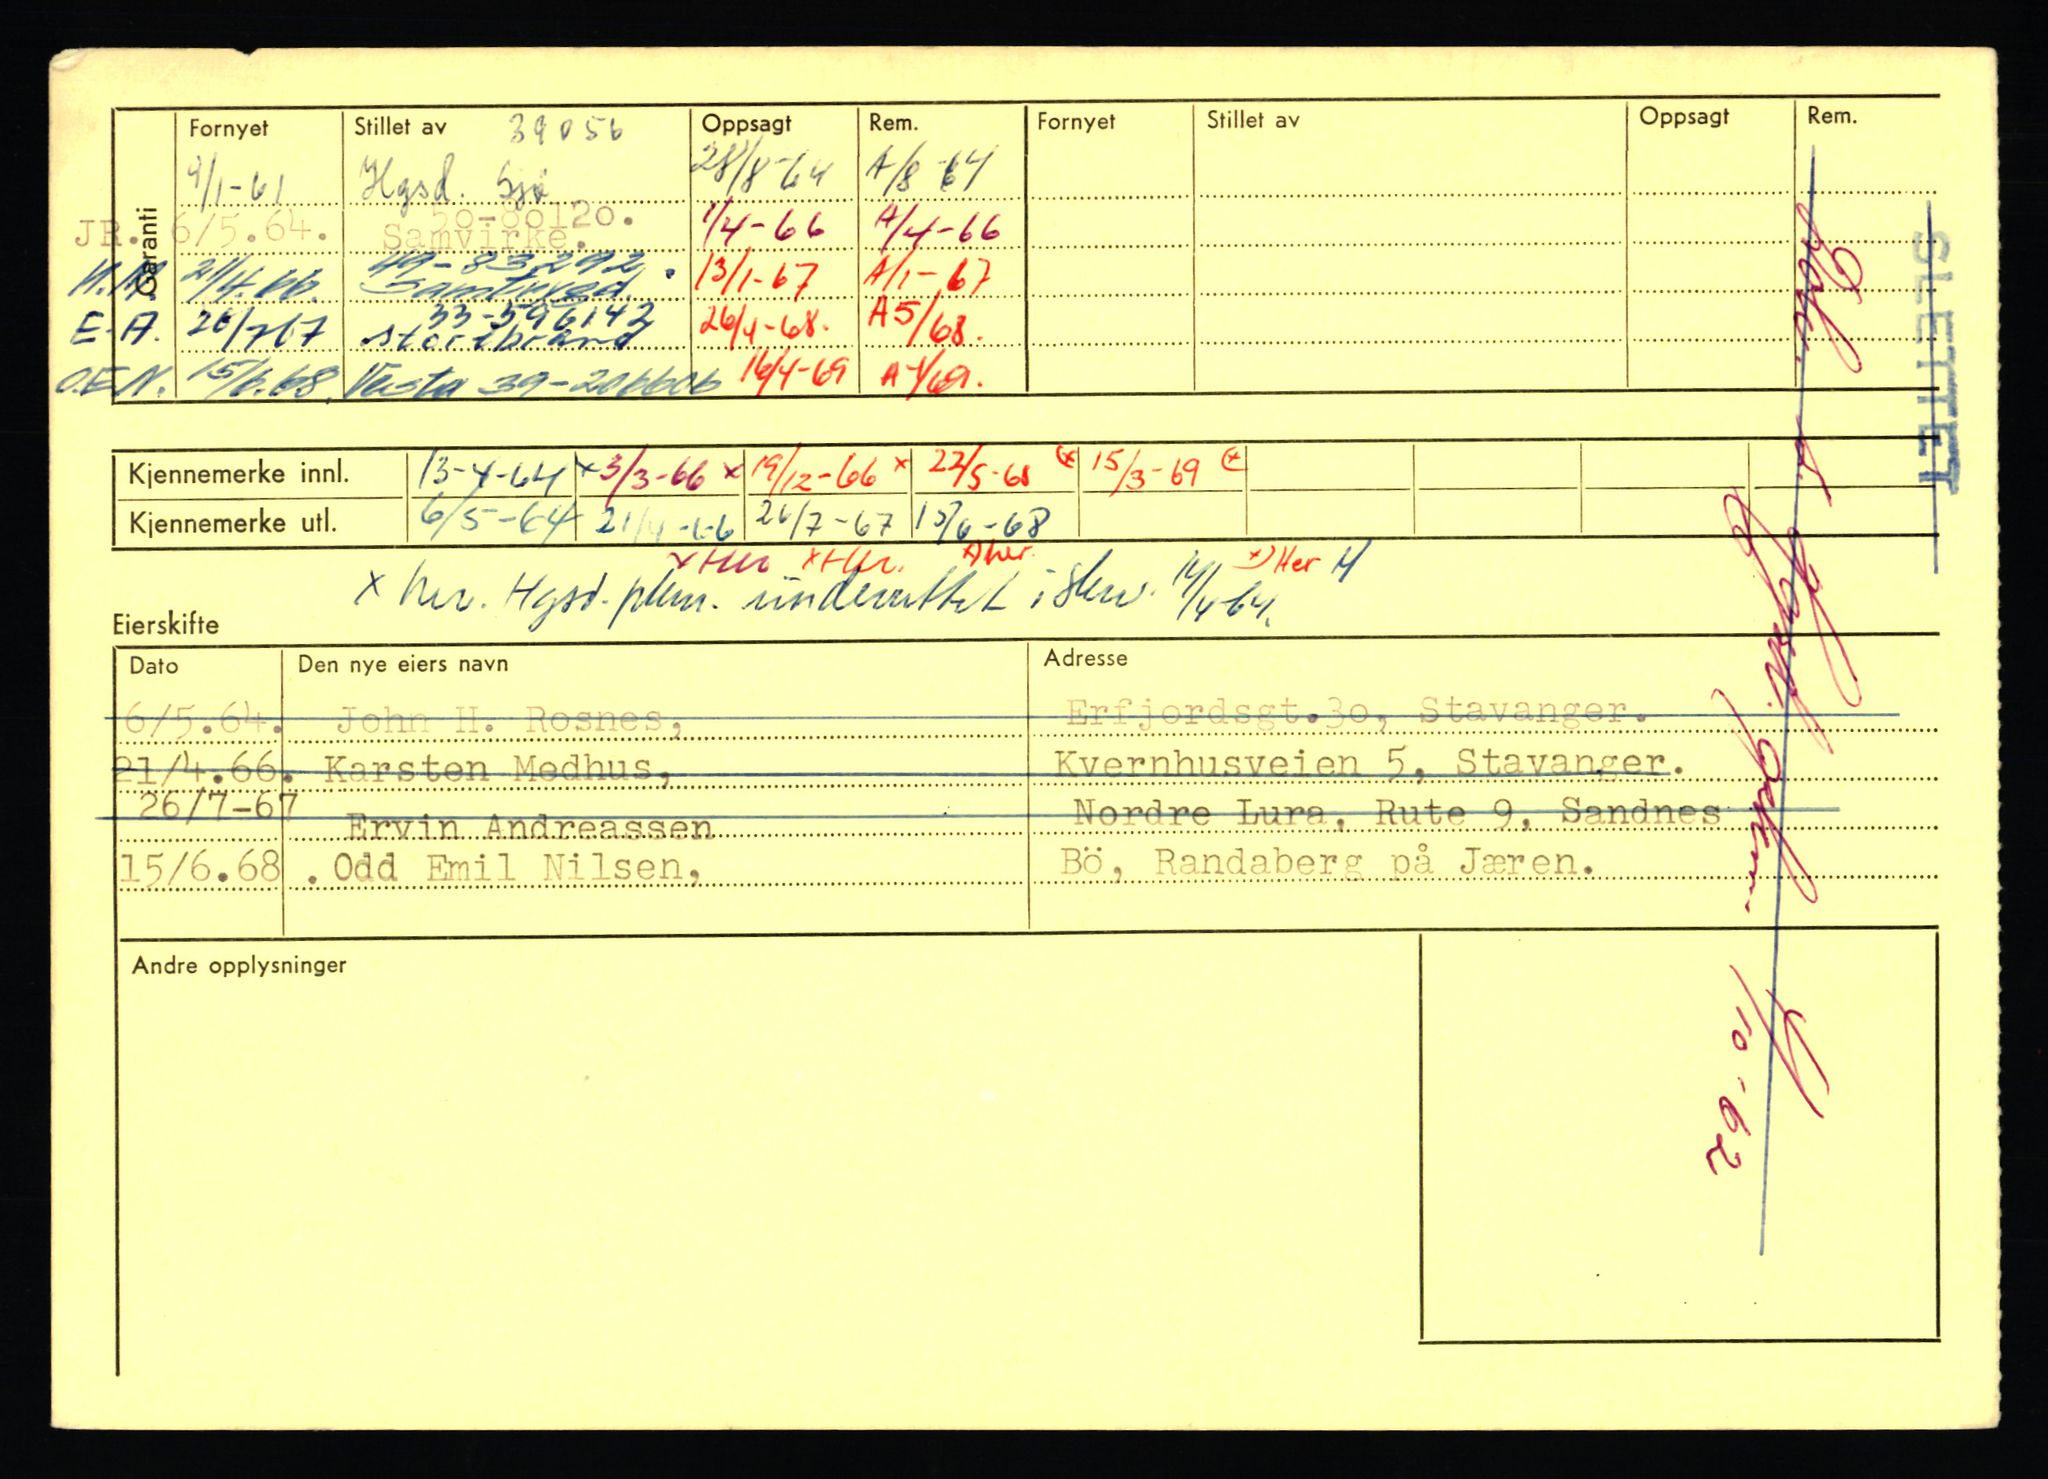 Garanti
Fornyet Stillet av 39056 Oppsagt Rem. Fornyet Stillet av Oppsagt Rem.
4/1-61 Hgsd. Sjø 28/8-64 A/8-64
50-80120.
JR. 6/5.64. Samvirke. 1/4-66 A/4-66
49-83292.
21/4.66. Samtrygd. 13/1-67 A/1-67
33-596142
E.A. 26/7 67 Storebrand 26/4-68. A5/68.
O.E.N. 15/6.68. Vesta 39-206606 16/4-69 A4/69.
Kjennemerke innl. 13-4-64 x 3/3-66 x 19/12-66 x 22/5-68 (x 15/3-69 (x
Kjennemerke utl. 6/5-64 21/4-66 26/7-67 15/6-68
x) her. x) Her
x her. Hgsd. underrettet i 14/4-64.
Eierskifte
Dato Den nye eiers navn Adresse
6/5.64. John H. Rosnes, Erfjordsgt.3o, Stavanger.
21/4.66. Karsten Medhus, Kvernhusveien 5, Stavanger.
26/7-67 Ervin Andreassen Nordre Lura, Rute 9, Sandnes
15/6.68 . Odd Emil Nilsen, Bö, Randaberg på Jæren.
Andre opplysninger
SLETTET
10-62